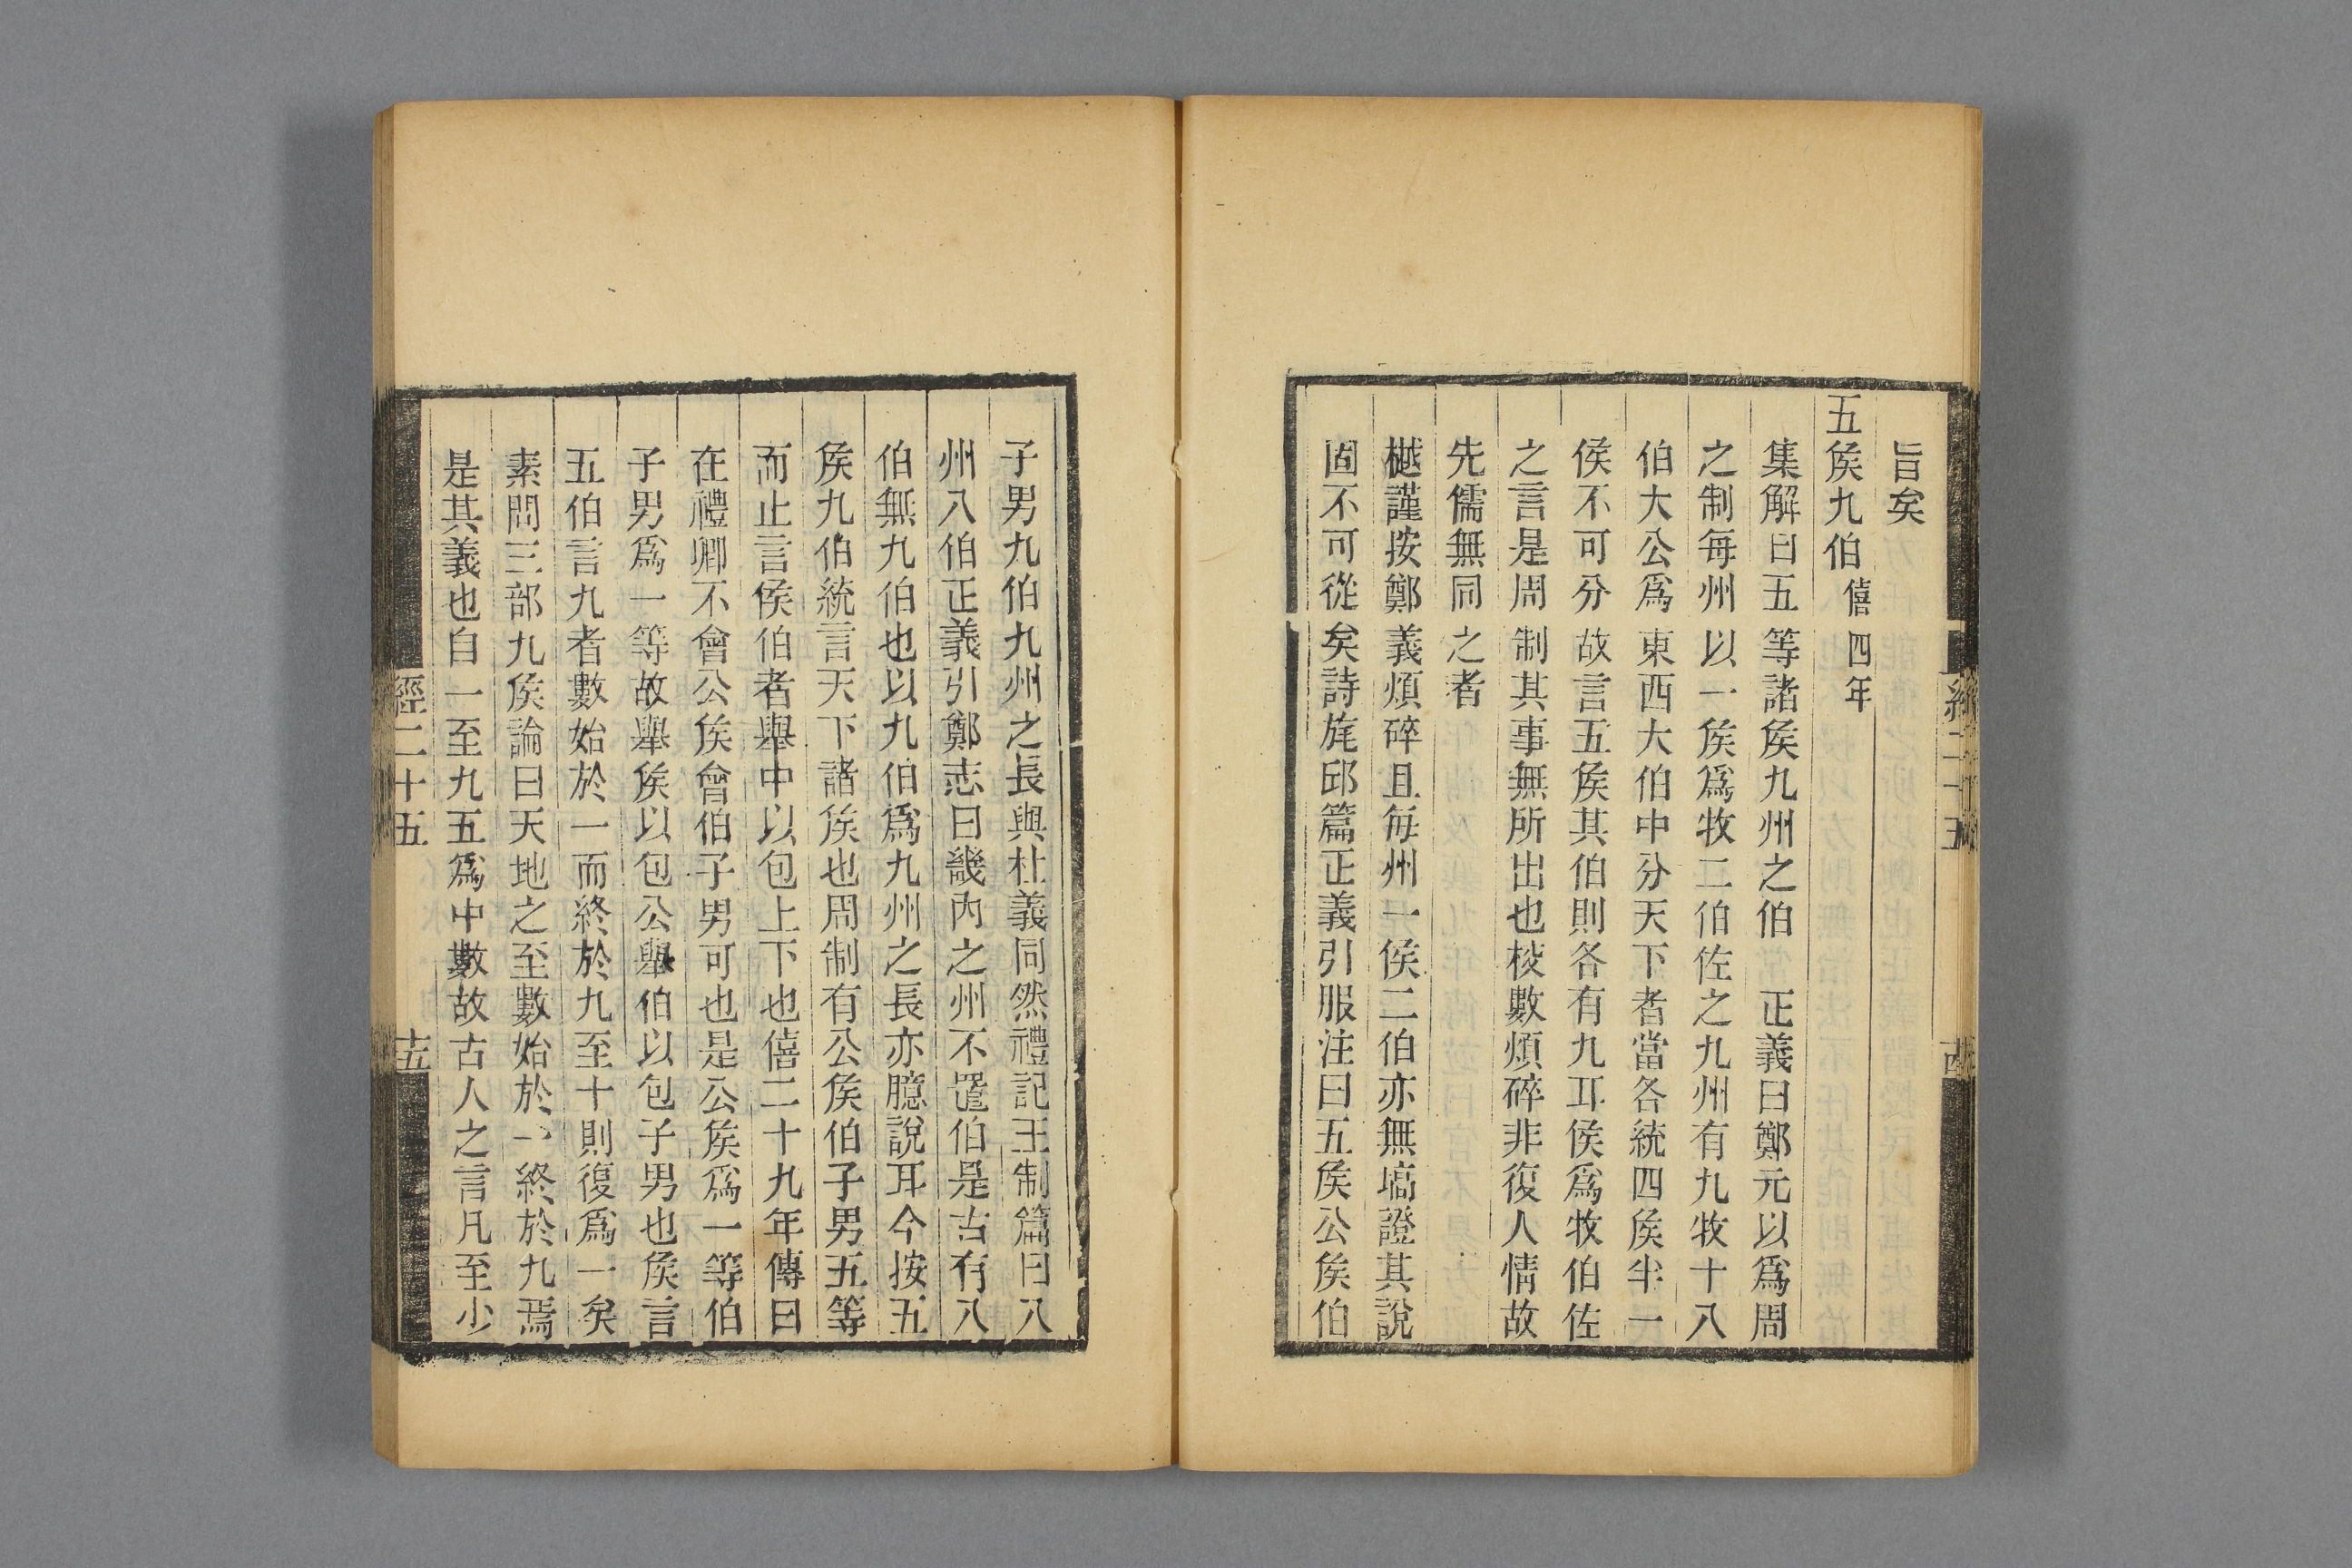 旨矣
五矦九伯僖四年
集解曰五等諸矦九州之伯　正義曰鄭元以爲周
之制每州以一矦爲牧二伯佐之九州有九牧十八
伯大公爲東西大伯中分天下者當各統四矦半一
侯不可分故言五矦其伯則各有九耳侯爲牧伯佐
之言是周制其事無所出也校數煩碎非復人情故
先儒無同之者
樾謹按鄭義煩碎且每州一侯二伯亦無塙證其說
固不可從矣詩旄邱篇正義引服注曰五矦公矦伯
子男九伯九州之長與杜義同然禮記王制篇曰八
州八伯正義引鄭志曰畿內之州不置伯是古有八
伯無九伯也以九伯爲九州之長亦臆說耳今按五
矦九伯統言天下諸矦也周制有公矦伯子男五等
而止言侯伯者舉中以包上下也僖二十九年傳曰
在禮卿不會公矦會伯子男可也是公矦爲一等伯
子男爲一等故舉矦以包公舉伯以包子男也矦言
五伯言九者數始於一而終於九至十則復爲一矣
素問三部九矦論曰天地之至數始於一終於九焉
是其義也自一至九五爲中數故古人之言凡至少
經二十五
十五